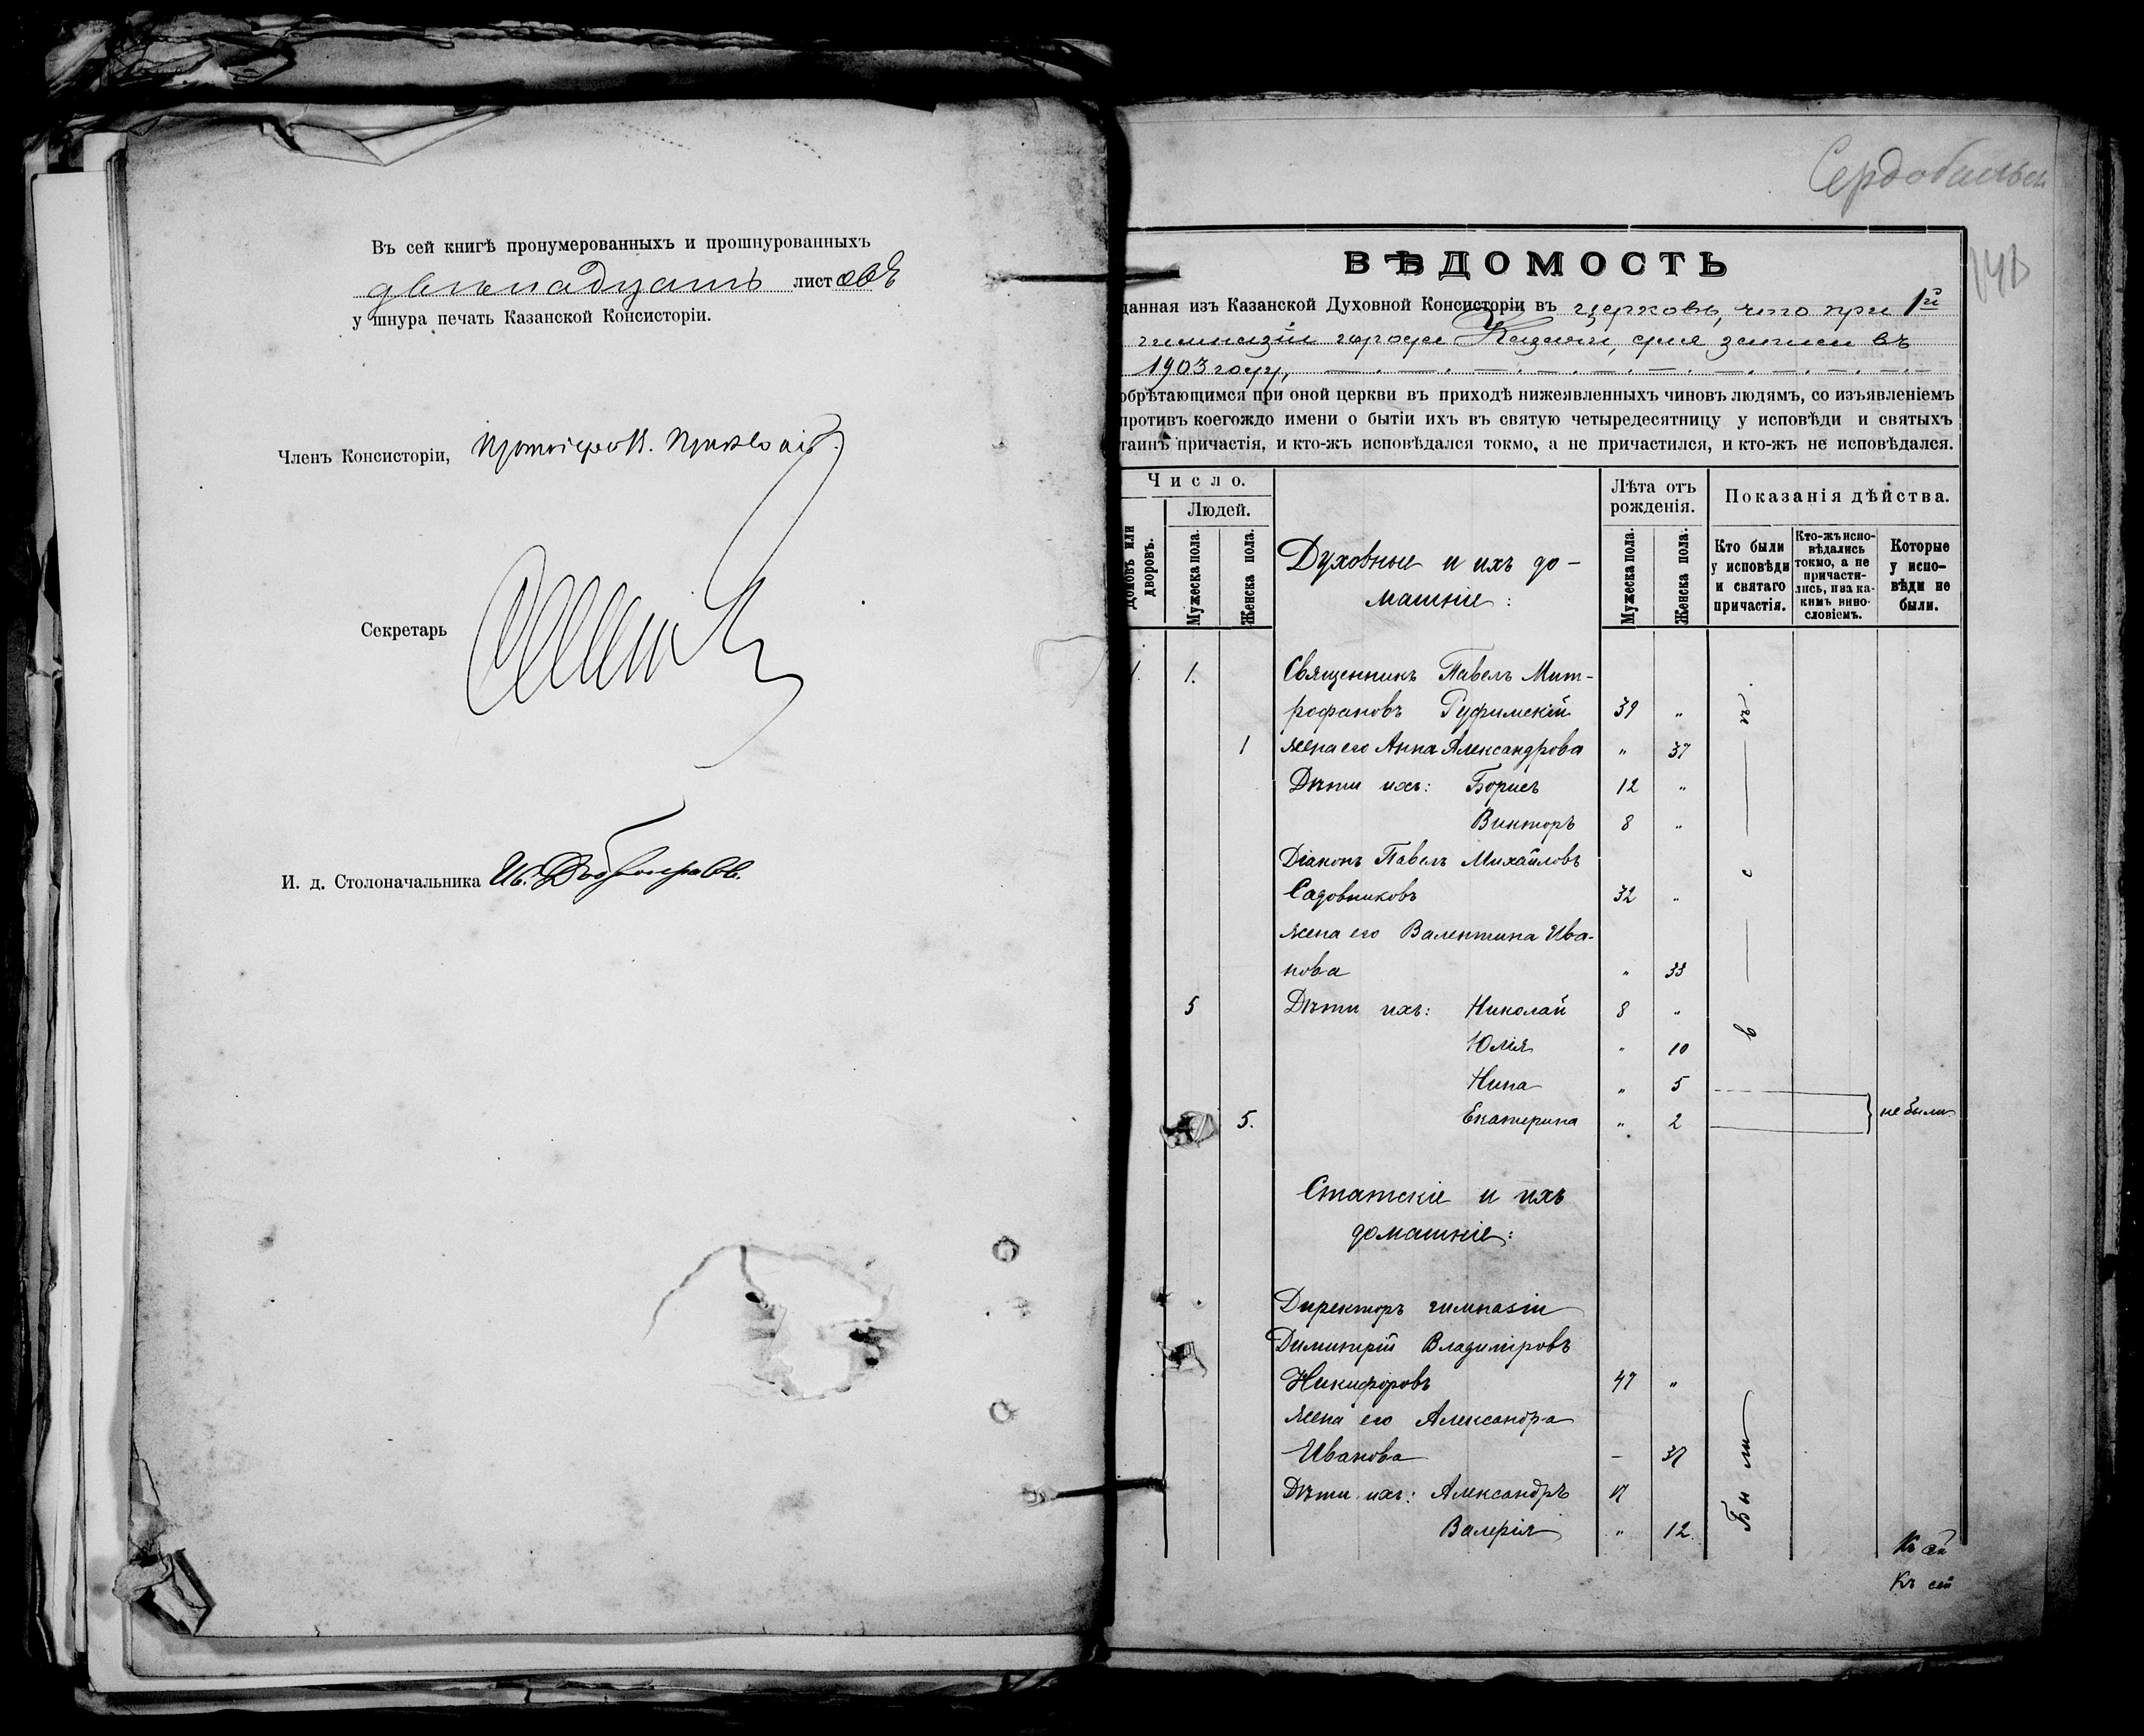 Въ сей книгѣ пронумерованныхъ и прошнурованныхъ
двѣнадцать листовъ
у шнура печать Казанской Консисторіи.
Членъ Консисторіи,
Секретарь
И. д. Столоначальника Ив. Добронравов.
ВѢДОМОСТЬ
данная изъ Казанской Духовной Консисторіи въ церковь, что при 1й
гимназіи города Казани, для записи въ
1903 году,
обрѣтающимся при оной церкви въ приходѣ нижеявленныхъ чиновъ людямъ, со изъявленіемъ
противъ коегождо имени о бытіи ихъ въ святую четыредесятницу у исповѣди и святыхъ
таинъ причастія, и кто-жъ исповѣдался токмо, а не причастился, и кто-жъ не исповѣдался.
Число.
Людей.
Домовъ или дворовъ.
Мужеска пола.
Женска пола.
Духовные и ихъ до-
машніе:
Лѣта отъ
рожденія.
Мужеска пола.
Женска пола.
Показанія дѣйства.
Кто были
у исповѣди
и святаго
причастія.
Кто-жъ испо-
вѣдались
токмо, а не
причасти-
лись, и за ка-
кимъ вино-
словіемъ.
Которые
у испо-
вѣди не
были.
1. 1. Священникъ Павелъ Мит-
рофановъ Руфимскій 39 "
1 жена его Анна Александрова " 37
Дѣти ихъ: Борисъ 12 "
Викторъ 8 "
Діаконъ Павелъ Михайловъ
Садовниковъ 32 "
жена его Валентина Ива-
нова " 33
5 Дѣти ихъ: Николай 8 "
Юлія " 10
Нина " 5
5. Екатерина " 2 не были
Статскіе и ихъ
домашніе:
Директоръ гимназіи
Димитрій Владиміровъ
Никифоровъ 47 "
жена его Александра
Иванова – 37
Дѣти ихъ: Александръ
Валерія " 12
Были
Къ сей
Къ сей